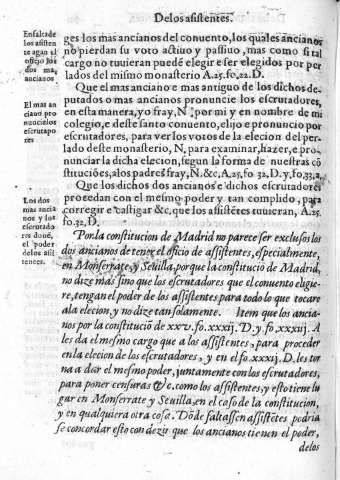 De los asistentes.
En falta de
los asisten
tes agan el
oficio los
dos mas
ancianos
ges los mas ancianos del conuento, los quales ancianos
no pierdan su voto actiuo y passiuo, mas como si tal
cargo no tuuieran puedē elegir e ser elegidos por per
lados del mismo monasterio A.25.fo.22.D.
El mas an
ciano pro
nuncie los
escrutapo
res
Que el mas anciano e mas antiguo de los dichos de-
putados o mas ancianos pronuncie los escrutadores,
en esta manera, yo fray, N por mi y en nombre de mi
colegio, e deste santo conuento, elijo e pronuncio por
escrutadores, para ver los votos de la eleccion del per-
lado deste monasterio, N, para examinar, hazer, e pro-
nunciar la dicha elecion, segun la forma de nuestras cō
stituciōes, a los padres fray, N. &c. A.25. fo. 32, D. y, fo. 33, a,
Los dos
mas ancia
nos y los
escrutado
res tienē,
el poder
delos asis
tentes.
Que los dichos dos ancianos e dichos escrutadores
procedan con el mismo poder y tan complido, para
corregir e castigar &c, que los assistētes tuuieran, A.25.
fo. 32, D.
Por la constitucion de Madrid no parece ser exclusos los
dos ancianos de tener el oficio de assistentes, especialmente,
en Monserrate, y Seuilla, porque la constitució de Madrid,
no dize mas sino que los escrutadores que el conuento eligie-
re, tengan el poder de los assistentes para todo lo que tocare
a la elecion, y no dize tan solamente. Item que los ancia-
nos por la constituciō de xxv. fo. xxxij. D. y fo. xxxiij. A
les da el mesmo cargo que a los assistentes, para proceder
en la elecion de los escrutadores, y en el fo. xxxij. D. les tor
na a dar el mesmo poder, juntamente con los escrutadores,
para poner censuras &c. como los assistentes, y esto tiene lu
gar en Monserrate y Seuilla, en el caso de la constitucion,
y en qualquiera otra cosa. Dōde faltassen assistētes podria
se concordar esto con dezir que los ancianos tienen el poder,
delos